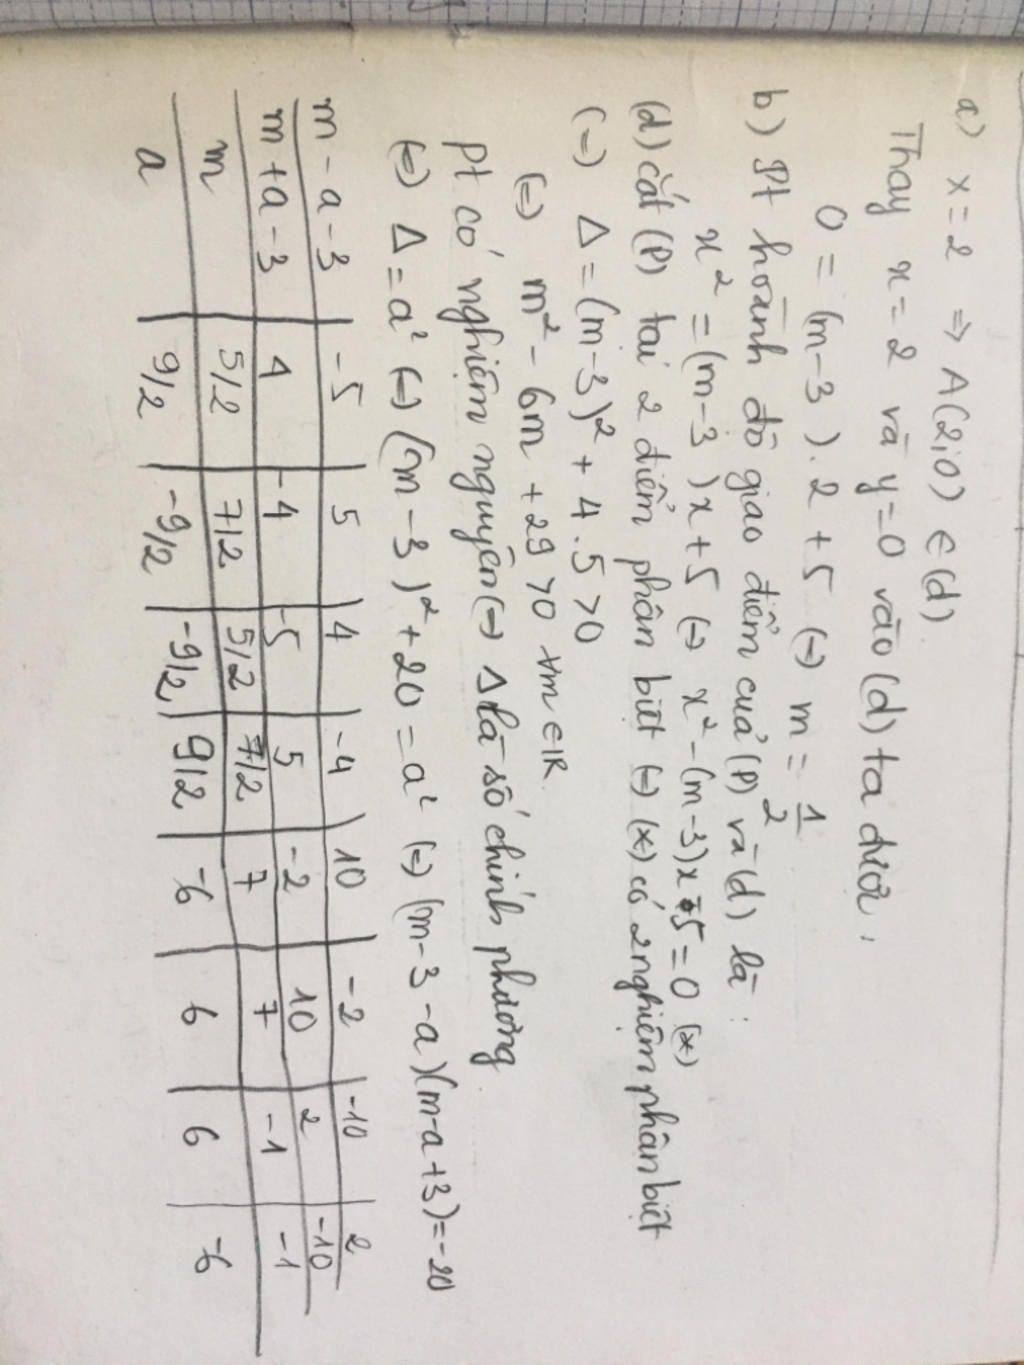 a) x=2 => A(2;0) ∈ (d).
Thay x=2 và y=0 vào (d) ta được:
0 = (m-3).2 + 5 (=) m = 1/2
b) Pt hoành độ giao điểm của (P) và (d) là:
x² = (m-3)x+5 (=) x² - (m-3)x-5=0 (*)
(d) cắt (P) tại 2 điểm phân biệt (=) (*) có 2 nghiệm phân biệt
(=) Δ = (m-3)² + 4.5 >0
(=) m² - 6m + 29 >0 ∀m ∈ IR.
pt có nghiệm nguyên (=) Δ là số chính phương
(=) Δ = a² (=) (m-3)² + 20 = a² (=) (m-3-a)(m-a+3)=-20
m-a-3 -5 5 4 -4 10 -2 -10 2
m+a-3 4 -4 -5 5 -2 10 2 -10
m 5/2 7/2 5/2 7/2 7 7 -1 -1
a 9/2 -9/2 -9/2 9/2 -6 6 6 -6